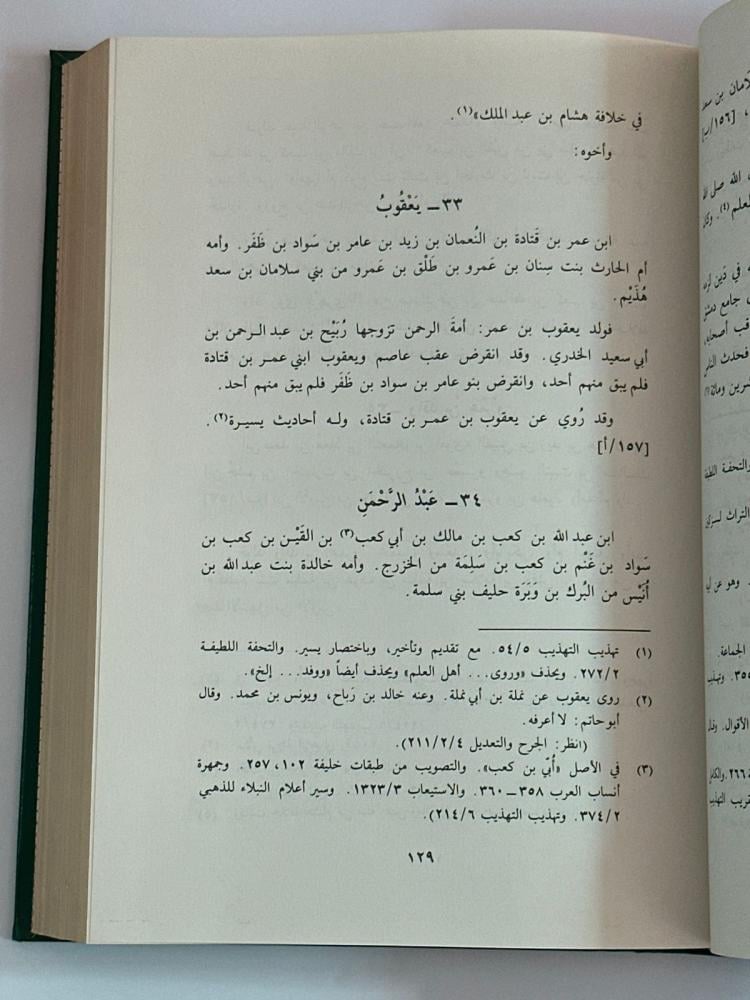 في خلافة هشام بن عبد الملك»(١).
وأخوه:
٣٣ــ يَعْقُوبُ
ابن عمر بن قَتادة بن النُعمان بن زيد بن عامر بن سَواد بن ظَفَر. وأمه
أم الحارث بنت سِنان بن عَمرو بن طَلْق بن عَمرو من بني سلامان بن سعد
هُذَيْم.
فولد يعقوب بن عمر: أمةَ الرحمن تزوجها رُبَيْح بن عبد الرحمن بن
أبي سعيد الخدري. وقد انقرض عقب عاصم ويعقوب ابني عمر بن قتادة
فلم يبق منهم أحد، وانقرض بنو عامر بن سواد بن ظَفَر فلم يبق منهم أحد.
وقد رُوي عن يعقوب بن عمر بن قتادة، وله أحاديث يسيرة(٢).
[١٥٧/أ]
٣٤ــ عَبْدُ الرَّحْمَنِ
ابن عبد الله بن كعب بن مالك بن أبي كعب(٣) بن القَيْن بن كعب بن
سَواد بن غَنْم بن كعب بن سَلِمَة من الخزرج. وأمه خالدة بنت عبد الله بن
أُنَيْس من البُرك بن وَبَرَة حليف بني سلمة.
(١) تهذيب التهذيب ٥٤/٥. مع تقديم وتأخير، وباختصار يسير. والتحفة اللطيفة
٢٧٢/٢. ويحذف «وروى... أهل العلم» ويحذف أيضاً «ووفد... إلخ».
(٢) روى يعقوب عن نملة بن أبي نملة. وعنه خالد بن رَباح، ويونس بن محمد. وقال
أبو حاتم: لا أعرفه.
(انظر: الجرح والتعديل ٢١١/٢/٤).
(٣) في الأصل «أُبّي بن كعب». والتصويب من طبقات خليفة ١٠٢، ٢٥٧. وجمهرة
أنساب العرب ٣٥٨ــ٣٦٠. والاستيعاب ١٣٢٣/٣. وسير أعلام النبلاء للذهبي
٣٧٤/٢. وتهذيب التهذيب ٢١٤/٦).
١٢٩